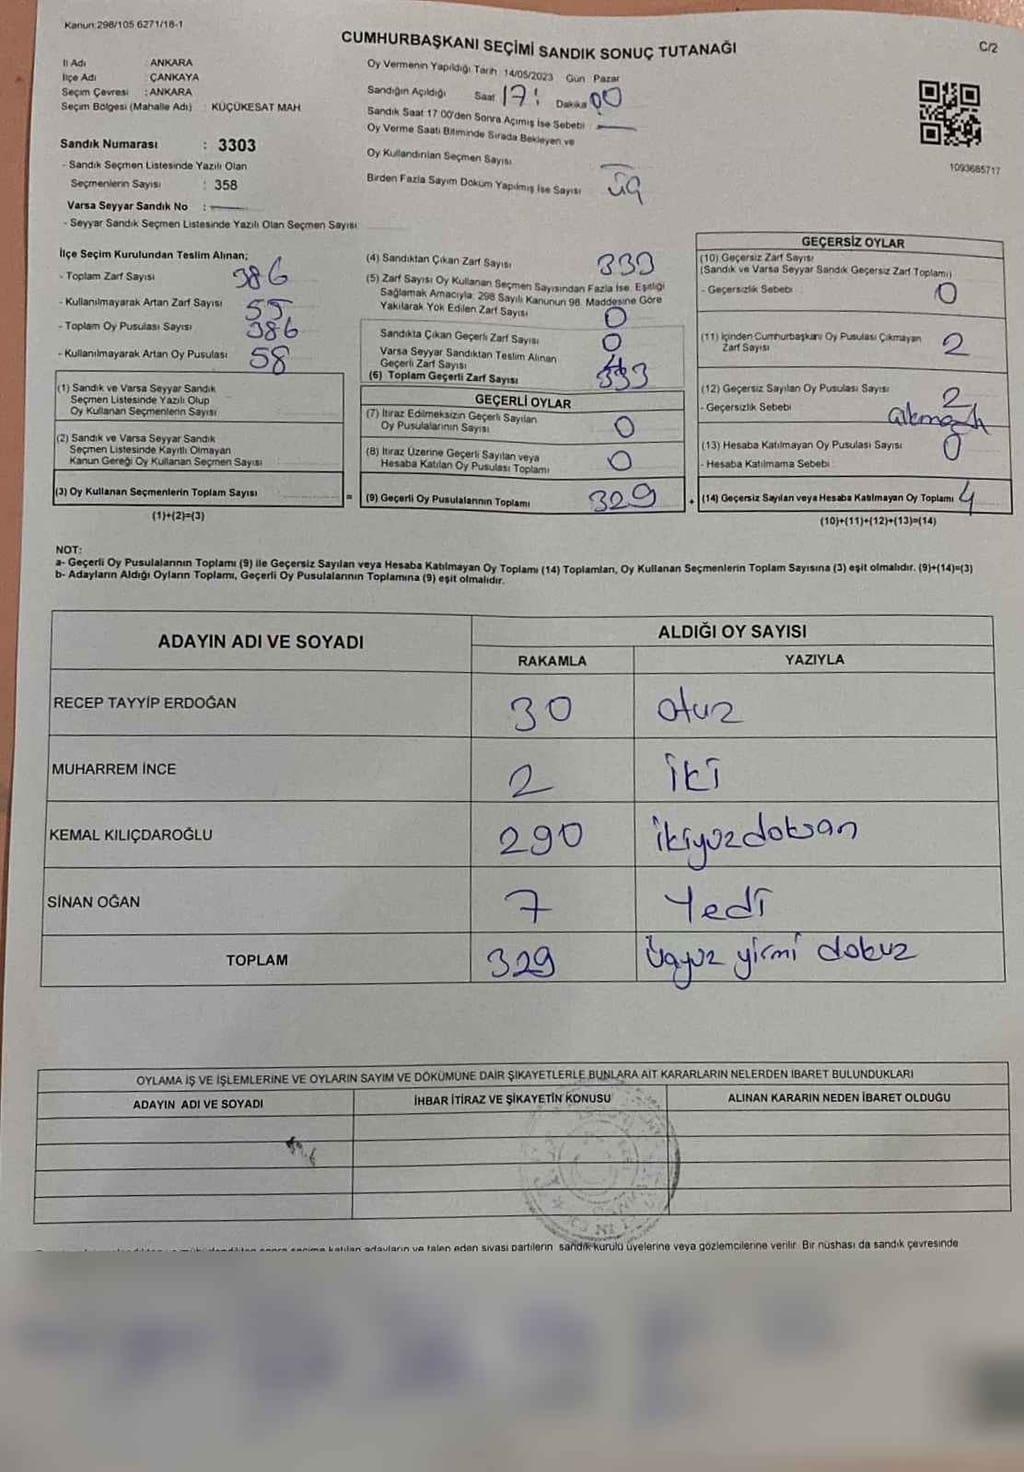 Kanun:298/105 6271/16-1
CUMHURBAŞKANI SEÇİMİ SANDIK SONUÇ TUTANAĞI
C/2
İl Adı : ANKARA
İlçe Adı : ÇANKAYA
Seçim Çevresi : ANKARA
Seçim Bölgesi (Mahalle Adı) : KÜÇÜKESAT MAH.
Sandık Numarası : 3303
- Sandık Seçmen Listesinde Yazılı Olan
Seçmenlerin Sayısı : 358
Varsa Seyyar Sandık No :
- Seyyar Sandık Seçmen Listesinde Yazılı Olan Seçmen Sayısı:
Oy Vermenin Yapıldığı Tarih : 14/05/2023 Gün Pazar
Sandığın Açıldığı Saat 17: Dakika 00
Sandık Saat 17 00'den Sonra Açımış İse Sebebi
Oy Verme Saati Bitiminde Sırada Bekleyen ve
Oy Kullandırılan Seçmen Sayısı
Birden Fazla Sayım Döküm Yapılmış İse Sayısı üç
1093685717
İlçe Seçim Kurulundan Teslim Alınan;
- Toplam Zarf Sayısı 386
- Kullanılmayarak Artan Zarf Sayısı 55
- Toplam Oy Pusulası Sayısı 386
- Kullanılmayarak Artan Oy Pusulası 58
(1) Sandık ve Varsa Seyyar Sandık
Seçmen Listesinde Yazılı Olup
Oy Kullanan Seçmenlerin Sayısı
(2) Sandık ve Varsa Seyyar Sandık
Seçmen Listesinde Kayıtlı Olmayan
Kanun Gereği Oy Kullanan Seçmen Sayısı
(3) Oy Kullanan Seçmenlerin Toplam Sayısı
(1)+(2)=(3)
=
(4) Sandıktan Çıkan Zarf Sayısı 333
(5) Zarf Sayısı Oy Kullanan Seçmen Sayısından Fazla İse, Eşitliği
Sağlamak Amacıyla; 298 Sayılı Kanunun 98. Maddesine Göre
Yakılarak Yok Edilen Zarf Sayısı 0
Sandıkta Çıkan Geçerli Zarf Sayısı 0
Varsa Seyyar Sandıktan Teslim Alınan
Geçerli Zarf Sayısı
(6) Toplam Geçerli Zarf Sayısı 333
GEÇERLİ OYLAR
(7) İtiraz Edilmeksizin Geçerli Sayılan
Oy Pusulalarının Sayısı 0
(8) İtiraz Üzerine Geçerli Sayılan veya
Hesaba Katılan Oy Pusulası Toplamı 0
(9) Geçerli Oy Pusulalarının Toplamı 329
+
GEÇERSİZ OYLAR
(10) Geçersiz Zarf Sayısı
(Sandık ve Varsa Seyyar Sandık Geçersiz Zarf Toplamı)
- Geçersizlik Sebebi 0
(11) İçinden Cumhurbaşkanı Oy Pusulası Çıkmayan
Zarf Sayısı 2
(12) Geçersiz Sayılan Oy Pusulası Sayısı 2
- Geçersizlik Sebebi
(13) Hesaba Katılmayan Oy Pusulası Sayısı 0
- Hesaba Katılmama Sebebi
(14) Geçersiz Sayılan veya Hesaba Katılmayan Oy Toplamı 4
(10)+(11)+(12)+(13)=(14)
NOT:
a- Geçerli Oy Pusulalarının Toplamı (9) ile Geçersiz Sayılan veya Hesaba Katılmayan Oy Toplamı (14) Toplamları, Oy Kullanan Seçmenlerin Toplam Sayısına (3) eşit olmalıdır. (9)+(14)=(3)
b- Adayların Aldığı Oyların Toplamı, Geçerli Oy Pusulalarının Toplamına (9) eşit olmalıdır.
ADAYIN ADI VE SOYADI
ALDIĞI OY SAYISI
RAKAMLA
YAZIYLA
RECEP TAYYİP ERDOĞAN 30 otuz
MUHARREM İNCE 2 iki
KEMAL KILIÇDAROĞLU 290 ikiyüzdoksan
SİNAN OĞAN 7 Yedi
TOPLAM 329 üçyüz yirmi dokuz
OYLAMA İŞ VE İŞLEMLERİNE VE OYLARIN SAYIM VE DÖKÜMÜNE DAİR ŞİKAYETLERLE BUNLARA AİT KARARLARIN NELERDEN İBARET BULUNDUKLARI
ADAYIN ADI VE SOYADI
İHBAR İTİRAZ VE ŞİKAYETİN KONUSU
ALINAN KARARIN NEDEN İBARET OLDUĞU
sonra seçime katılan adayların ve talep eden siyasi partilerin sandık kurulu üyelerine veya gözlemcilerine verilir. Bir nüshası da sandık çevresinde